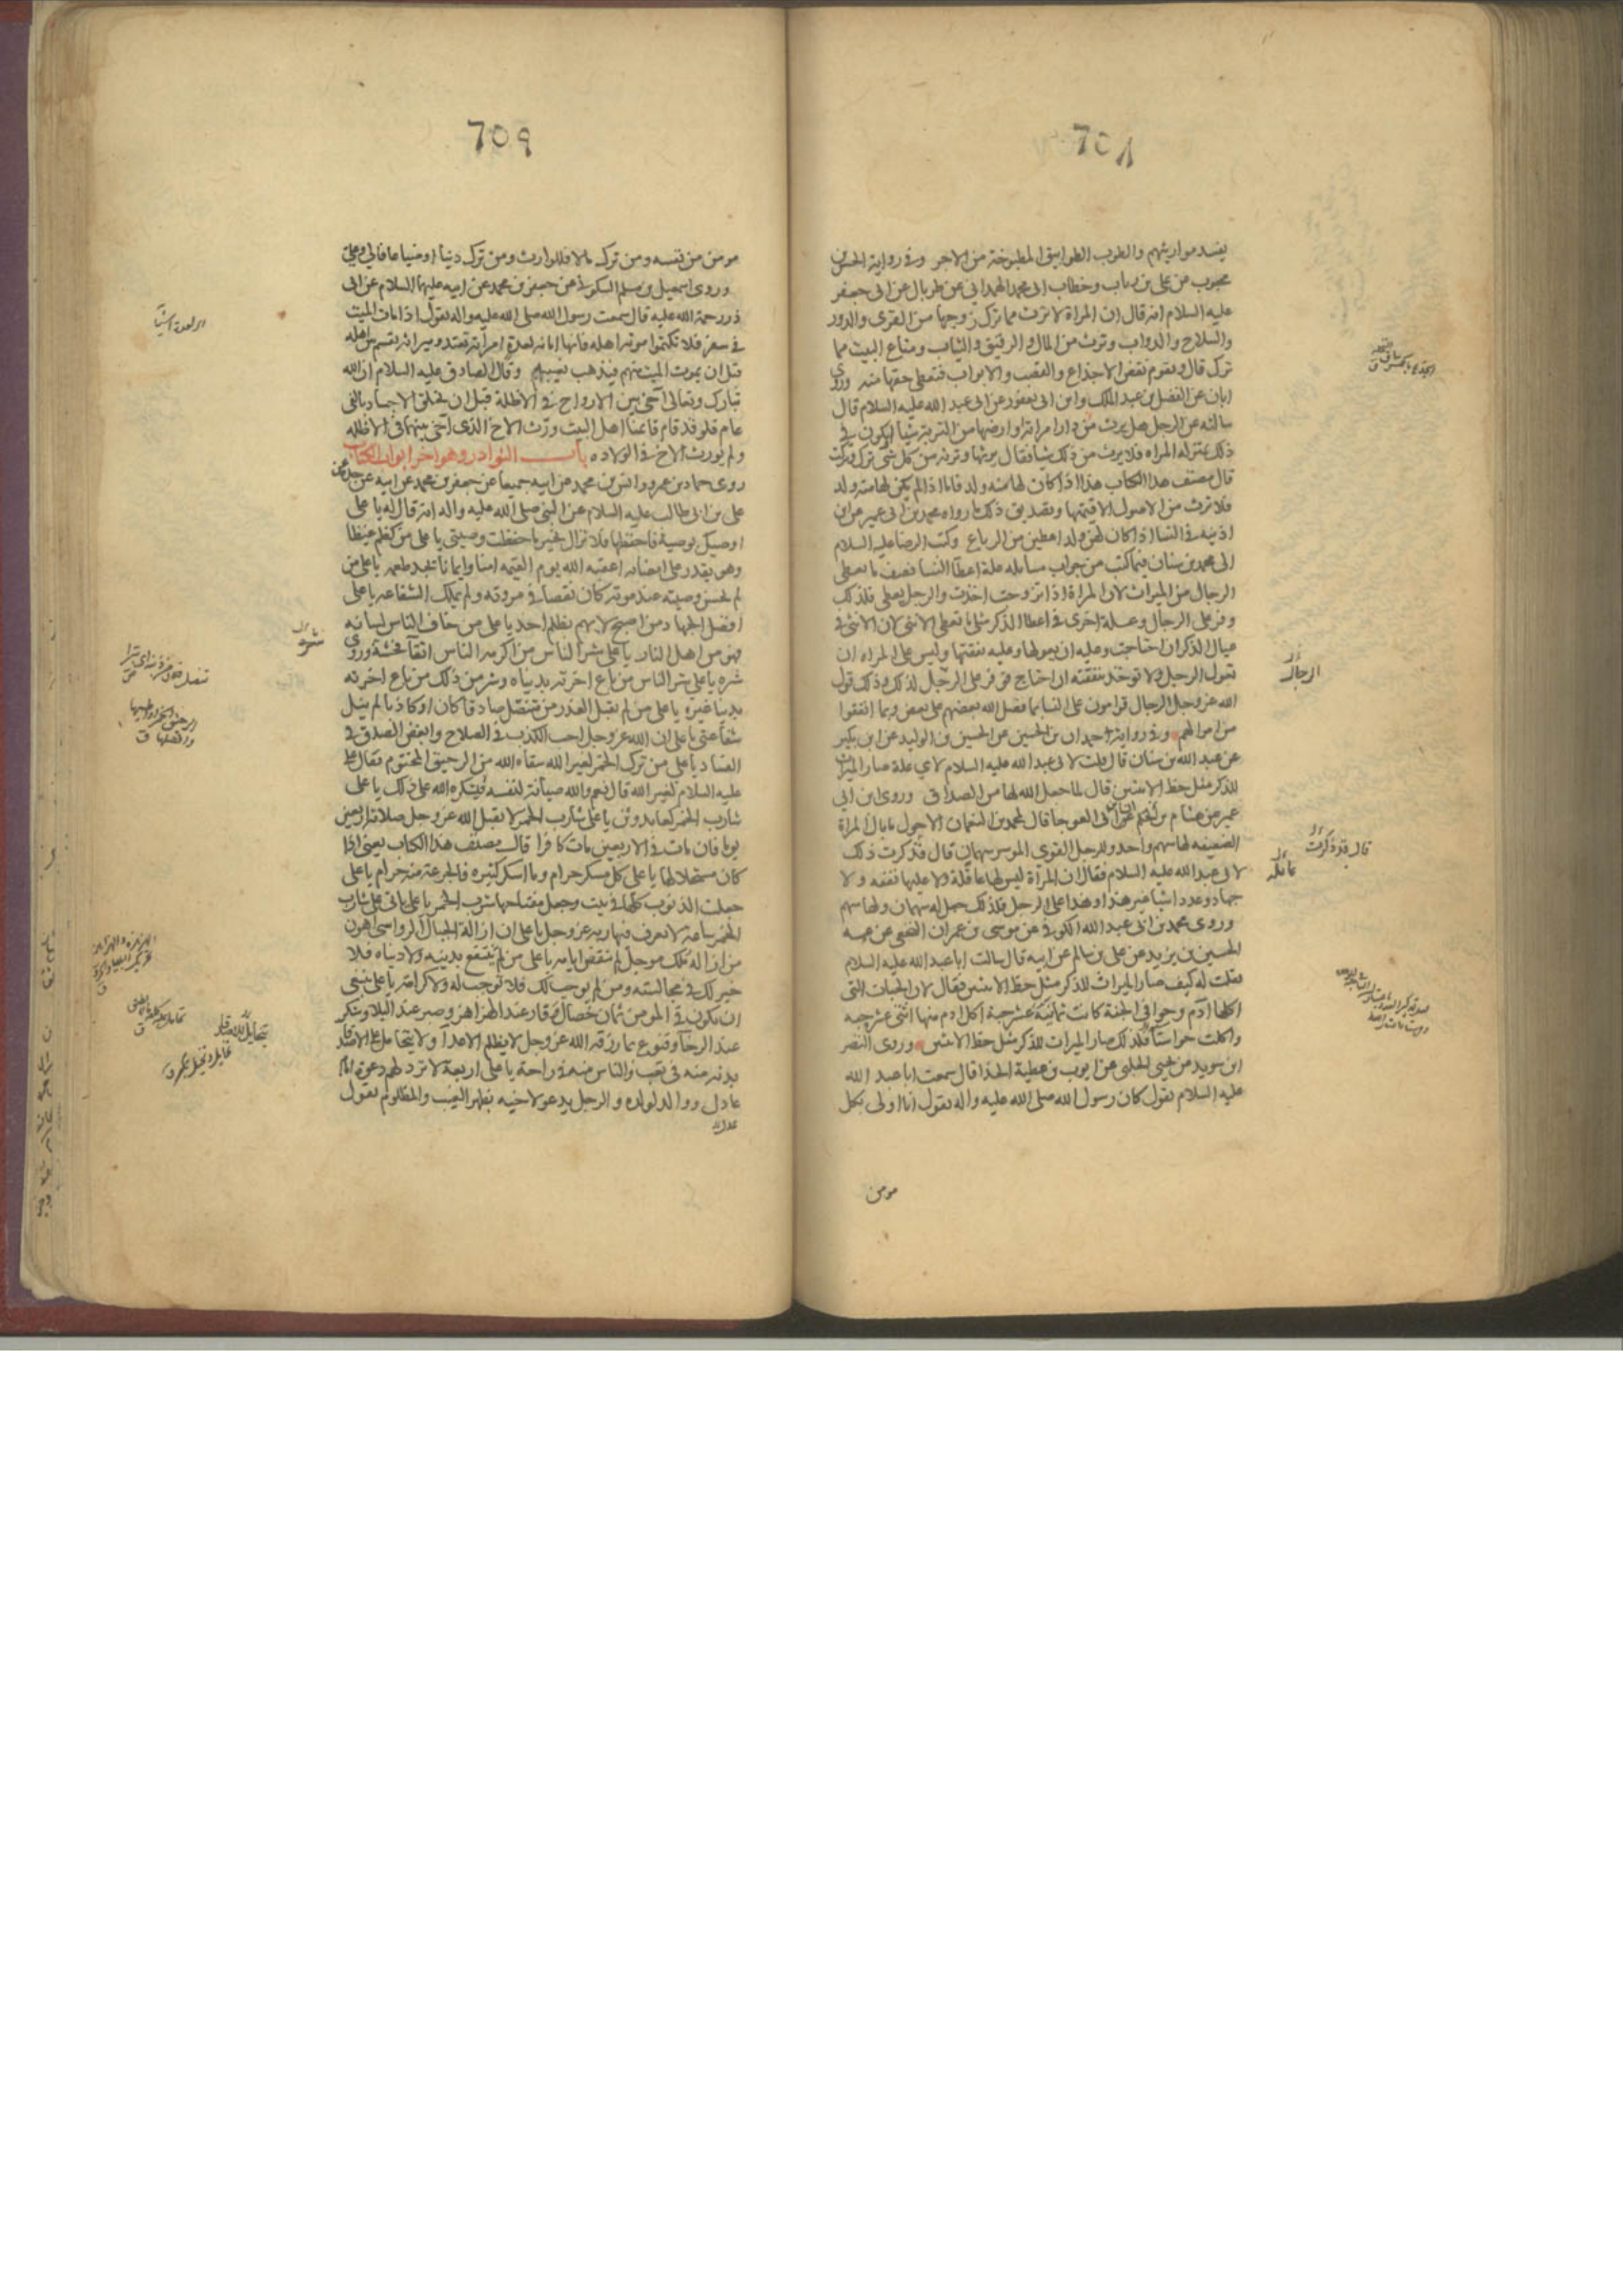 ٦٥٨
يفسد مواريثهم والطوب الطوابيق المطبوخة من الاجر وفى رواية الحسن بن
محبوب عن على بن رياب وخطاب ابى محمد الهمدانى عن طربال عن ابى جعفر
عليه السلام انه قال ان المراة لا ترث مما ترك زوجها من القرى والدور
والسلاح والدواب وترث من المال والرقيق والثياب ومتاع البيت مما
ترك قال ويقوم نقض الاجذاع والقصب والابواب فتعطى حقها منه وروى
ابان عن الفضل بن عبد الملك وابن ابى يعفور عن ابى عبد الله عليه السلام قال
سالته عن الرجل هل يرث من دار امراته او ارضها من التربة شيا او يكون فى
ذلك بمنزلة المراه فلا يرث من ذلك شيا فقال يرثها وترثه من كل شى ترك وتركت
قال مصنف هذا الكتاب هذا اذا كان لها منه ولد فاما اذا لم يكن لها منه ولد
فلا ترث من الاصول الا قيمتها وتصديق ذلك ما رواه محمد بن ابى عمير عن ابن
اذينه فى النسا اذا كان لهن ولد اعطين من الرباع وكتب الرضا عليه السلام
الى محمد بن سنان فيما كتب من جواب مسايله علة اعطا النسا نصف ما يعطى
الرجال من الميراث لان المراة اذا تزوجت اخذت والرجل يعطى فلذلك
وفر على الرجال وعلة اخرى فى اعطا الذكر مثلى ما تعطى الانثى لان الانثى فى
عيال الذكر ان احتاجت وعليه ان يعولها وعليه نفقتها وليس على المراه ان
تعول الرجل ولا توخذ بنفقته ان احتاج فوفر على الرجل لذلك وذلك قول
الله عز وجل الرجال قوامون على النسا بما فضل الله بعضهم على بعض وبما انفقوا
من اموالهم وفى رواية حمدان بن الحسين عن الحسين بن الوليد عن ابن بكير
عن عبد الله بن سنان قال قلت لابى عبد الله عليه السلام لاى علة صار الميراث
للذكر مثل حظ الانثيين قال لما جعل الله لها من الصداق وروى ابن ابى
عمير عن هشام بن سالم ان ابن ابى العوجا قال لمحمد بن النعمان الاحول ما بال المراة
الضعيفه لها سهم واحد وللرجل القوى الموسر سهمان قال فذكرت ذلك
لابى عبد الله عليه السلام فقال ان المراة ليس لها عاقلة ولا عليها نفقه ولا
جهاد وعدد اشيا غير هذا وهذا على الرجل فلذلك جعل له سهمان ولها سهم
وروى محمد بن ابى عبد الله الكوفى عن موسى بن عمران النخعى عن عمه
الحسين بن يزيد عن على بن سالم عن ابيه قال سالت ابا عبد الله عليه السلام
فقلت له كيف صار الميراث للذكر مثل حظ الانثيين فقال لان الحبات التى
اكلها ادم وحوا فى الجنة كانت ثمانية عشر حبة اكل ادم منها اثنى عشر حبه
واكلت حوا ستا فلذلك صار الميراث للذكر مثل حظ الانثيين وروى النضر
ابن سويد عن يحيى الحلبى عن ايوب بن عطية الحذا قال سمعت ابا عبد الله
عليه السلام يقول كان رسول الله صلى الله عليه واله يقول انا اولى بكل
مومن
الرجال
قال قد ذكرت
عاقله
٦٥٩
مومن من نفسه ومن ترك مالا فللوارث ومن ترك دينا او ضياعا فالى وعلى
وروى اسمعيل بن مسلم السكونى عن جعفر بن محمد عن ابيه عليهما السلام عن ابى
ذر رحمة الله عليه قال سمعت رسول الله صلى الله عليه واله يقول اذا مات الميت
فى سفر فلا تكتموا موته اهله فانها امانه لعدة امراته تعتد وميراثه يقسم بين اهله
قبل ان يموت الميت منهم فيذهب نصيبه وقال الصادق عليه السلام ان الله
تبارك وتعالى اخى بين الارواح فى الاظلة قبل ان يخلق الاجساد بالفى
عام فلو قد قام قائمنا اهل البيت ورث الاخ الذى اخى بينهما فى الاظله
ولم يورث الاخ فى الولاده باب النوادر وهو اخر ابواب الكتاب
روى حماد بن عمرو وانس بن محمد عن ابيه جميعا عن جعفر بن محمد عن ابيه عن جده عن
على بن ابى طالب عليه السلام عن النبى صلى الله عليه واله انه قال له يا على
اوصيك بوصية فاحفظها فلا تزال بخير ما حفظت وصيتى يا على من كظم غيظا
وهو يقدر على امضائه اعقبه الله يوم القيمه امنا وايمانا يجد طعمه يا على من
لم يحسن وصيته عند موته كان نقصا فى مروته ولم يملك الشفاعه يا على
افضل الجهاد من اصبح لا يهم بظلم احد يا على من خاف الناس لسانه
فهو من اهل النار يا على شر الناس من اكرمه الناس اتقا فحشه وروى
شره يا على شر الناس من باع اخرته بدنياه وشر من ذلك من باع اخرته
بدنيا غيره يا على من لم يقبل العذر من متنصل صادقا كان او كاذبا لم ينل
شفاعتى يا على ان الله عز وجل احب الكذب فى الصلاح وابغض الصدق فى
الفساد يا على من ترك الخمر لغير الله سقاه الله من الرحيق المختوم فقال على
عليه السلام لغير الله قال نعم والله صيانة لنفسه فيشكره الله على ذلك يا على
شارب الخمر كعابد وثن يا على شارب الخمر لا يقبل الله عز وجل صلاته اربعين
يوما فان مات فى الاربعين مات كافرا قال مصنف هذا الكتاب يعنى اذا
كان مستحلا لها يا على كل مسكر حرام وما اسكر كثيره فالجرعة منه حرام يا على
جعلت الذنوب كلها فى بيت وجعل مفتاحها شرب الخمر يا على ياتى على شارب
الخمر ساعة لا يعرف فيها ربه عز وجل يا على ان ازالة الجبال الرواسى اهون
من ازالة ملك موجل لم تنقض ايامه يا على من لم ينتفع بدينه ولا دنياه فلا
خير لك فى مجالسته ومن لم يوجب لك فلا توجب له ولا كرامة يا على ينبغى
ان يكون فى المومن ثمان خصال وقار عند الهزاهز وصبر عند البلا وشكر
عند الرخا وقنوع بما رزقه الله عز وجل لا يظلم الاعدا ولا يتحامل على الاصدقا
بدنه منه فى تعب والناس منه فى راحة يا على اربعة لا ترد لهم دعوة امام
عادل ووالد لولده والرجل يدعو لاخيه بظهر الغيب والمظلوم يقول